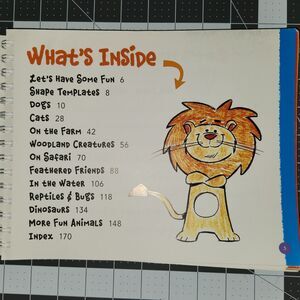 What's Inside
Let's Have Some Fun 6
Shape Templates 8
Dogs 10
Cats 28
On the Farm 42
Woodland Creatures 56
On Safari 70
Feathered Friends 88
In the Water 106
Reptiles & Bugs 118
Dinosaurs 134
More Fun Animals 148
Index 170
5